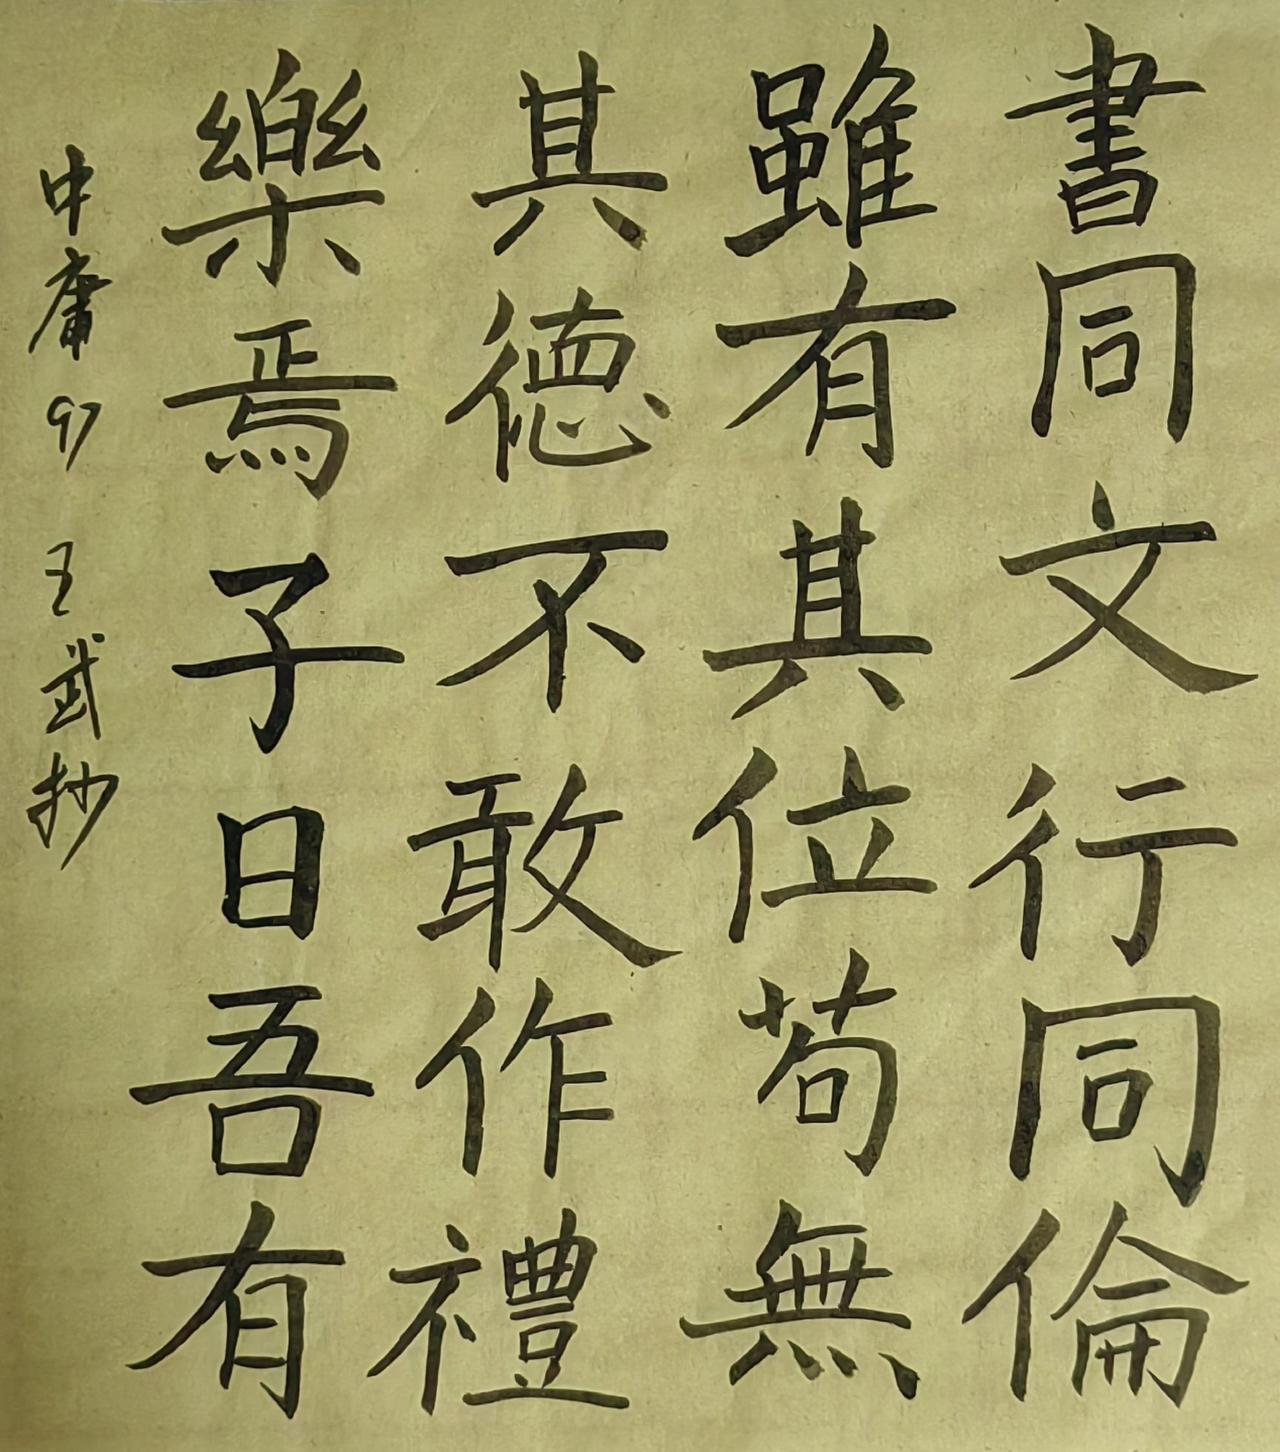 書同文行同倫
雖有其位苟無
其德不敢作禮
樂焉子日吾有
中庸97 王武抄